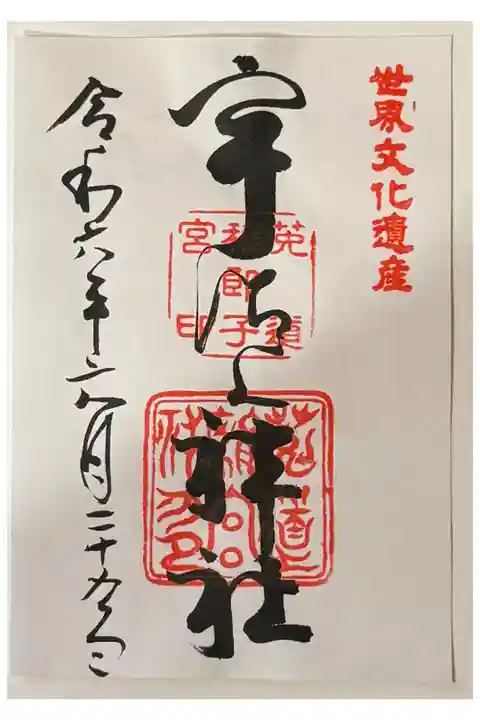 世界文化遺産
宇治上神社
菟道
稚郎子
宮印
令和六年六月二十九日